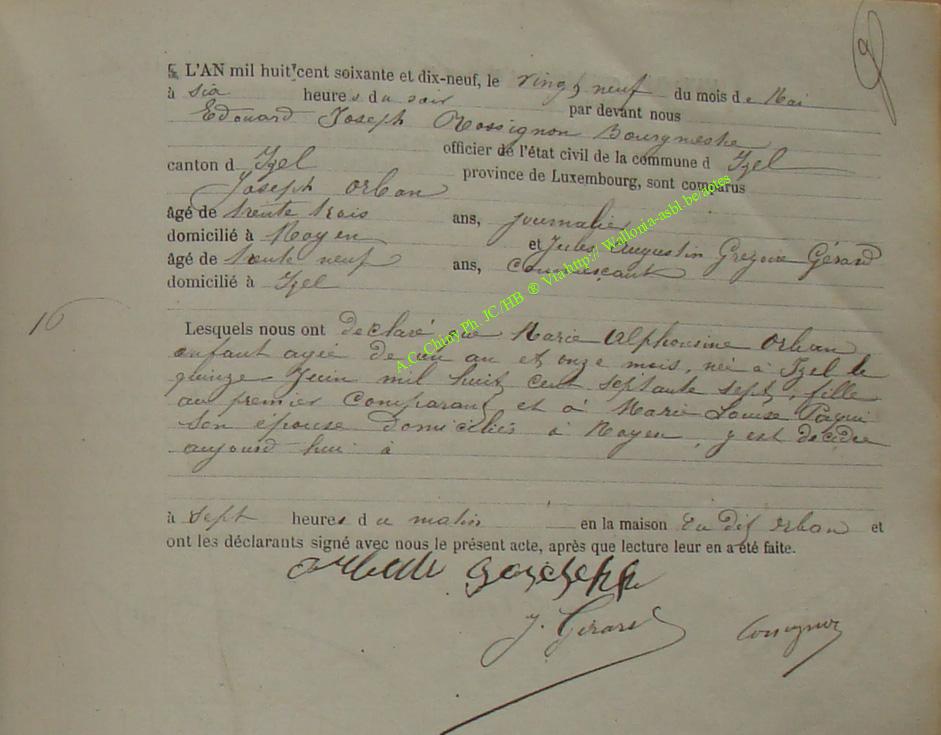 L'AN mil huit cent soixante et dix-neuf, le vingt neuf du mois de Mai
à six heures du soir par devant nous
Edouard Joseph Rossignon Bourgmestre
officier de l'état civil de la commune d Izel
canton d Izel province de Luxembourg, sont comparus
Joseph Orban
âgé de trente trois ans, journalier
domicilié à Moyen et Jules Augustin Grégoire Gérard
âgé de trente neuf ans, commerçant
domicilié à Izel
16
Lesquels nous ont déclaré que Marie Alphonsine Orban
enfant agée de un an et onze mois, née à Izel le
quinze Juin mil huit cent septante sept, fille
au premier comparant et à Marie Louise
son épouse domiciliés à Moyen, y est décédée
aujourd'hui à
à sept heures du matin en la maison du dit Orban et
ont les déclarants signé avec nous le présent acte, après que lecture leur en a été faite.
J. Gérard
A.C. Chiny Ph. JC/HB ® Via http://Wallonia-asbl.be/actes